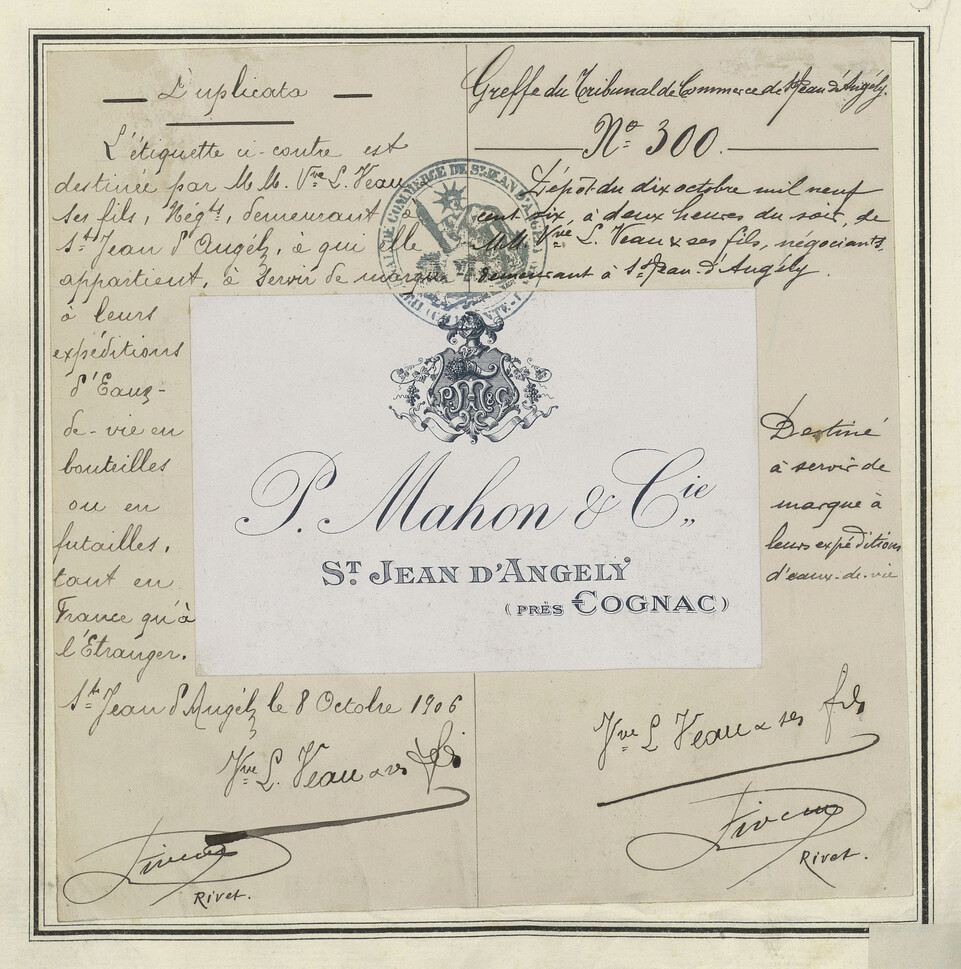 Duplicata
L'étiquette ci-contre est
destinée par M.M. Vve L. Veau
& ses fils, Négts, demeurant à
St Jean d'Angély, à qui elle
appartient, à servir de marque
à leurs
expéditions
d'Eaux-
de-vie en
bouteilles
ou en
futailles,
tant en
France qu'à
l'Étranger.
St Jean d'Angély le 8 Octobre 1906
Vve L. Veau & ses fils
Rivet.
Greffe du Tribunal de Commerce de St Jean d'Angély.
No 300.
Dépôt du dix octobre mil neuf
cent six, à deux heures du soir, de
MM. Vve L. Veau & ses fils, négociants,
demeurant à St Jean-d'Angély.
Destiné
à servir de
marque à
leurs expéditions
d'eaux-de-vie
Vve L Veau & ses fils
Rivet.
COMMERCE DE ST JEAN D'ANGÉLY
P M & C
P. Mahon & Cie
ST JEAN D'ANGELY
(PRÈS COGNAC)